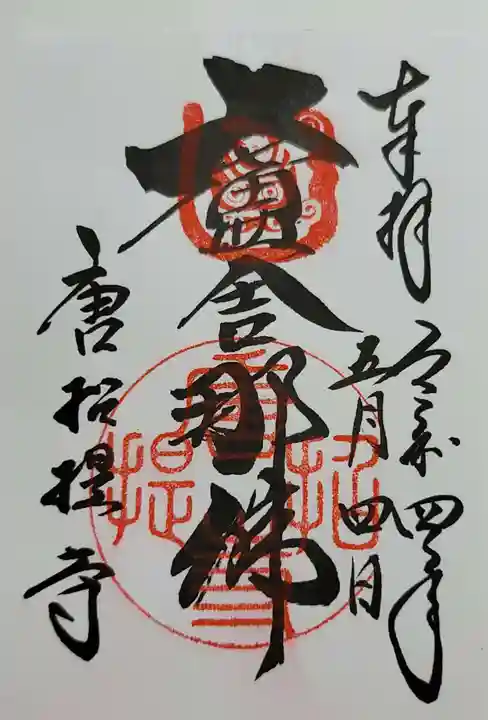 奉拝
令和四年
五月四日
盧舎那佛
唐招提寺
唐招提寺